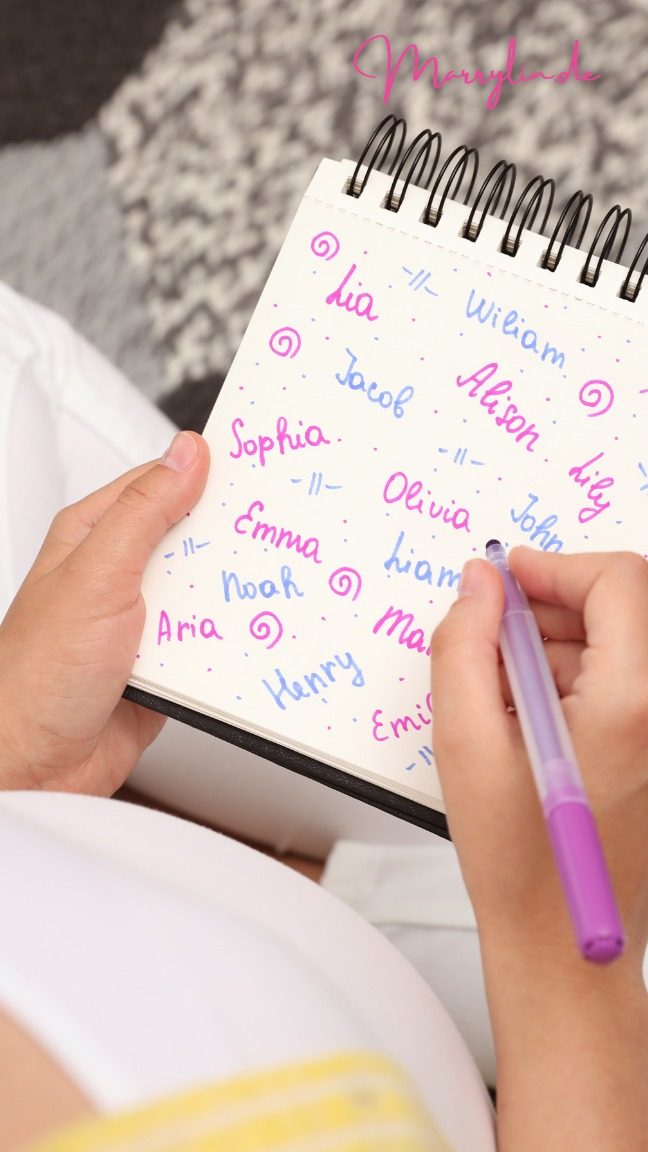 Marrylin.de
Lia
Wiliam
Jacob
Alison
Sophia
Lily
Olivia
John
Emma
Liam
Noah
Aria
Henry